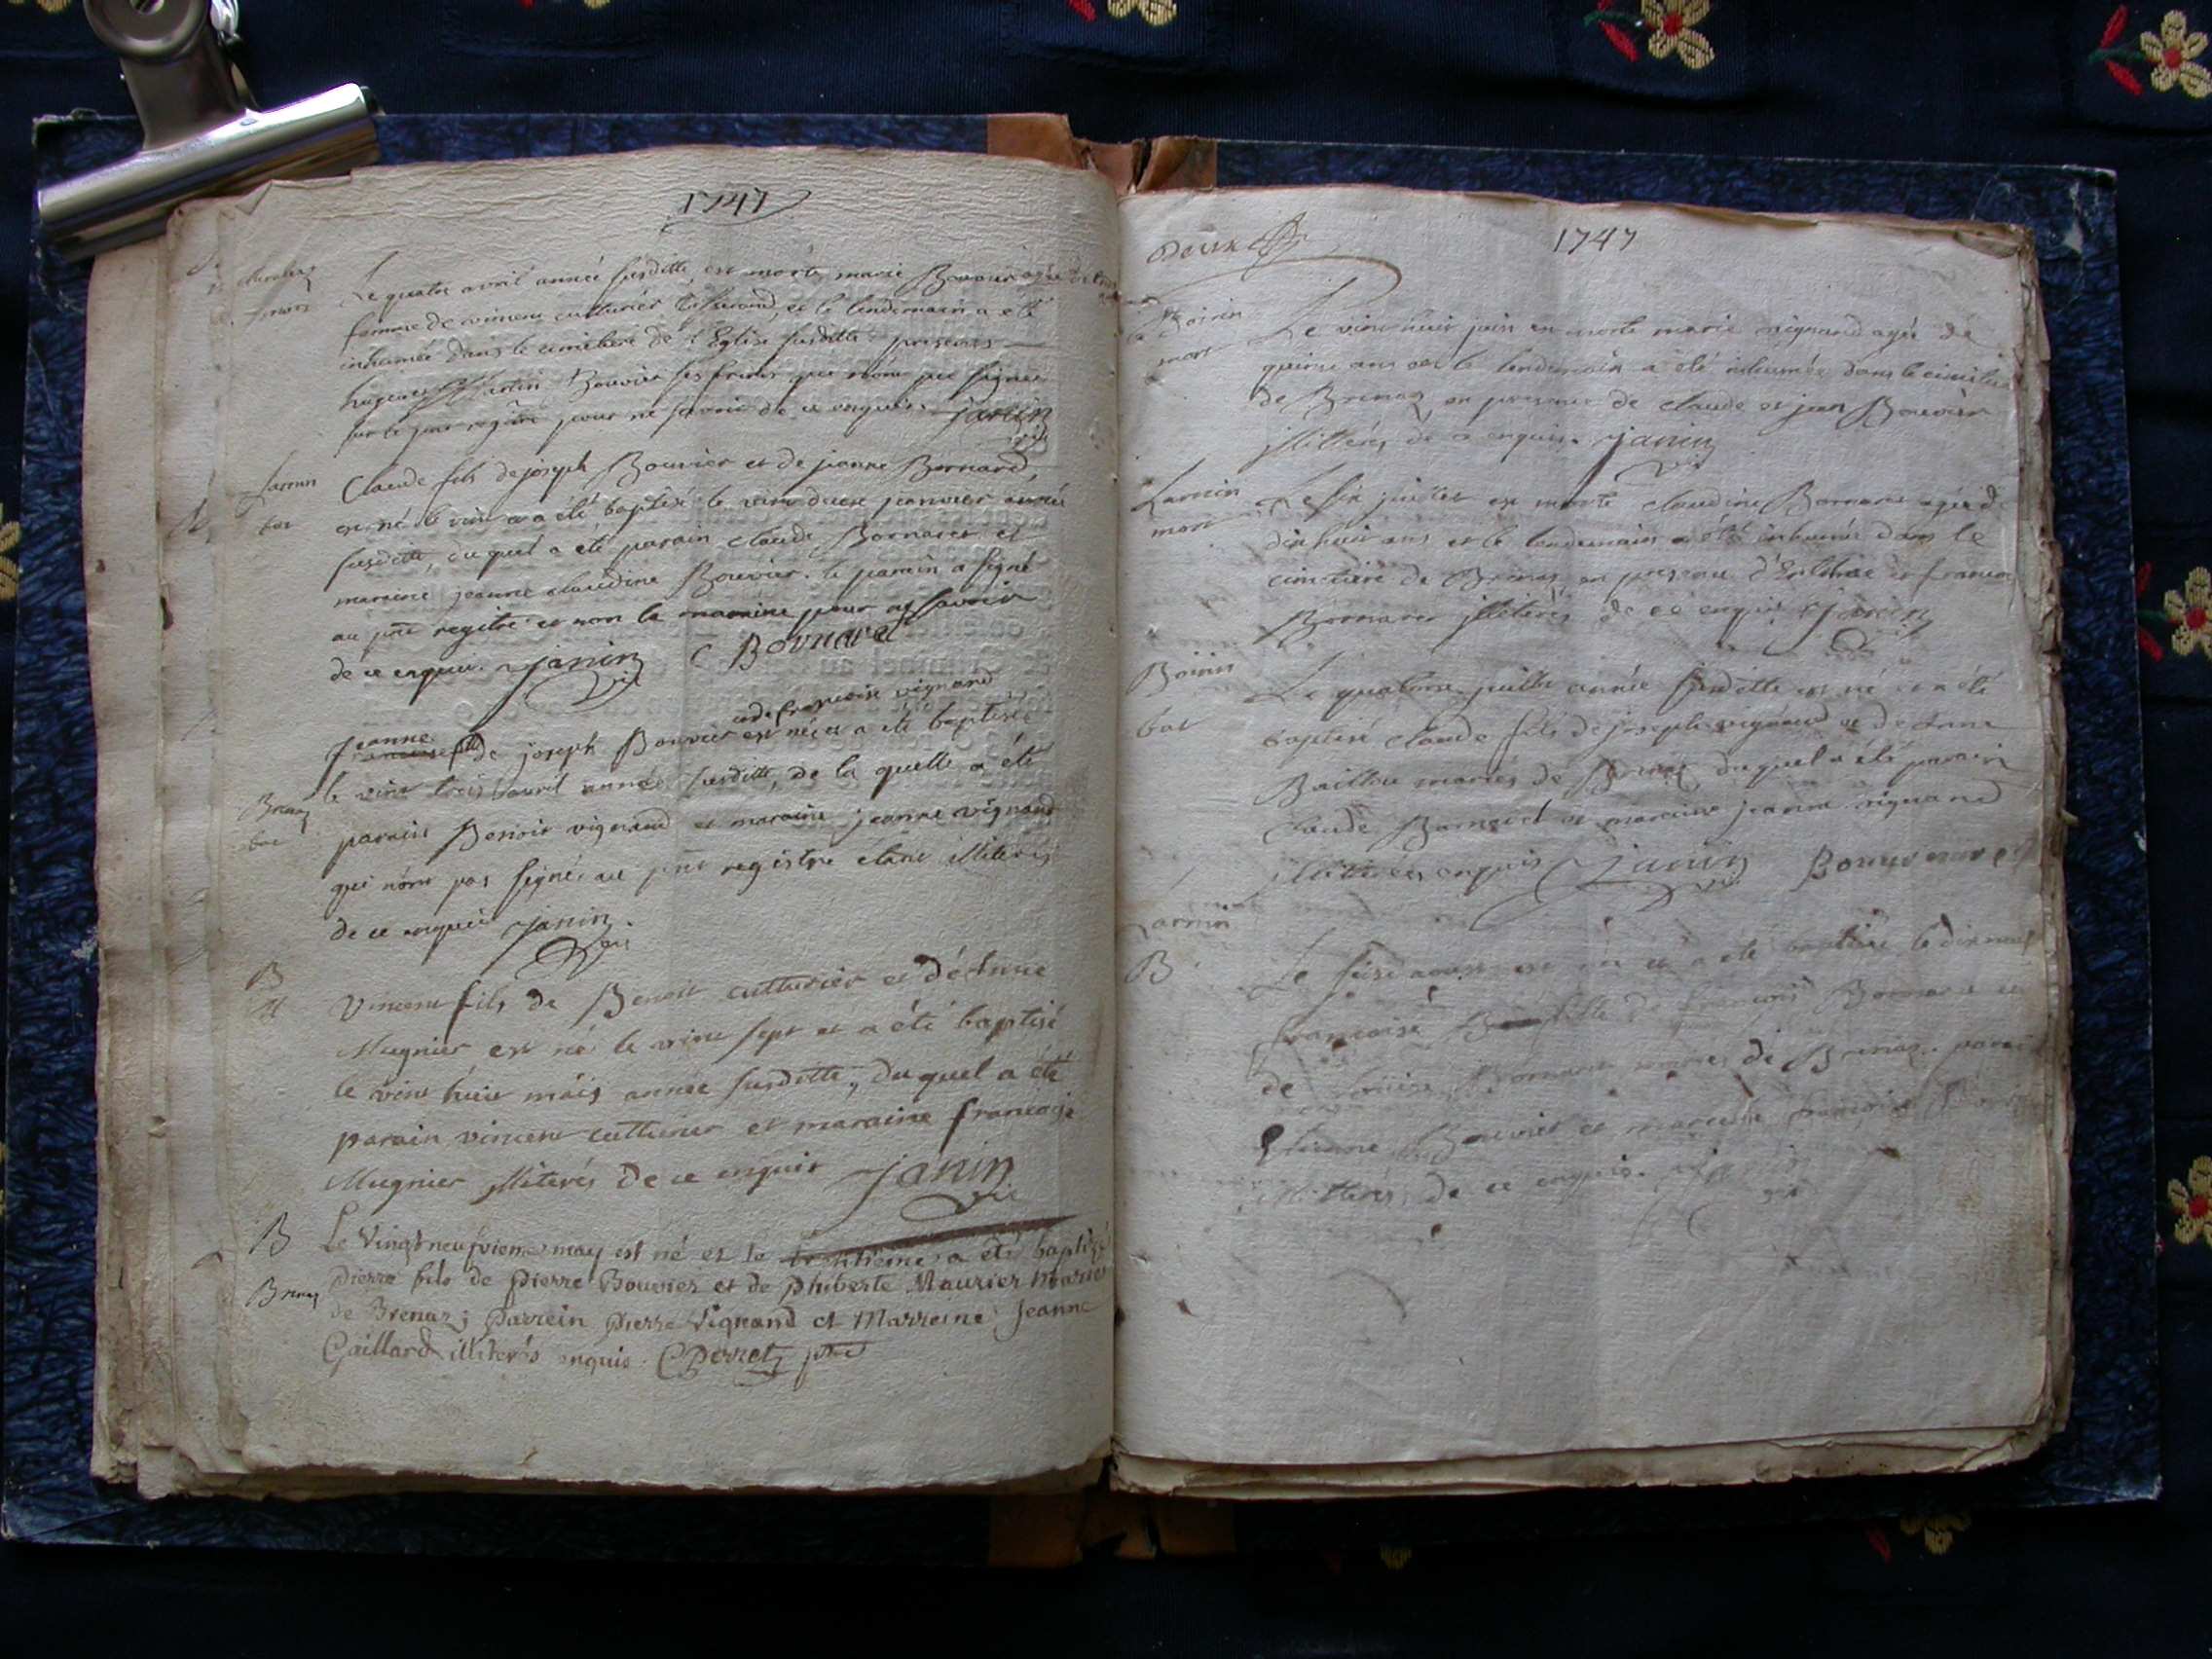 1747
Le quatre avril année susditte, est morte marie Bouvier agée de
femme de vincent cutturier tisserand, et le lendemain a été
inhumée dans le cimitiere de l'Eglise susditte presents
hugues Martin Bouvier ses freres qui n'ont pu signer
sur le pnt regitre pour ne savoir de ce enquis. janin
vic
Larnin
bat
Claude fils de joseph Bouvier et de jeanne Bornard,
est né le vint et a été baptisé le vint deux janvier année
susditte, duquel a été parain claude Bornaret et
maraine jeanne claudine Bouvier. le parain a signé
au pnt regitre et non la maraine pour ne savoir
de ce enquis. janin vic C Bornard
et de francoise vignand
jeanne
fille de joseph Bouvier est née et a été baptisée
le vint trois avril année susditte, de la quelle a été
Brenaz
bat
parain Benoit vignand et maraine jeanne vignand
qui n'ont pas signé au pnt registre étant illiterés
de ce enquis janin.
vic
B
M
Vincent fils de Benoit cutturier et d'Anne
Mugnier est né le vint sept et a été baptisé
le vint huit mais année susditte, du quel a été
parain vincent cutturier et maraine francoise
Mugnier jlliterés de ce enquis janin
vic
B
Le Vingt neufvieme may est né et le trentieme a été baptizé
Brenaz
Pierre fils de Pierre Bouvier et de Phiberte Maurier mariés
de Brenaz; Parrein Pierre Vignand et Marreine Jeanne
Gaillard illiterés enquis. CPerret ptre
Deux
1747
mort
Le vint huit juin est morte marie vignand agée de
quinze ans et le lendemain a été inhumée dans le cimitiere
de Brenaz en presence de claude et jean Bouvier
jllitterés de ce enquis. janin
vic
Larnin
mort
Le six juillet est morte claudine Bornaret agée de
dix huit ans et le lendemain a été inhumée dans le
cimitiere de Brenaz en presence d' et francois
Bornaret jlliterés de ce enquis janin
vic
bat
Le quatorze juillet année susditte est né et a été
baptisé claude fils de joseph vignand et de Anne
Baillu mariés de Brenaz duquel a été parain
Claude Bornard et maraine jeanne vignand
jllitterés enquis janin vic
Larnin
B
Le seize aoust est née et a été baptisée le dix neuf
francoise fille de francois Bornard et
de Bornard mariés de Brenaz. parain
Etienne Bouvier et maraine francoise
jllitterés de ce enquis.
vic